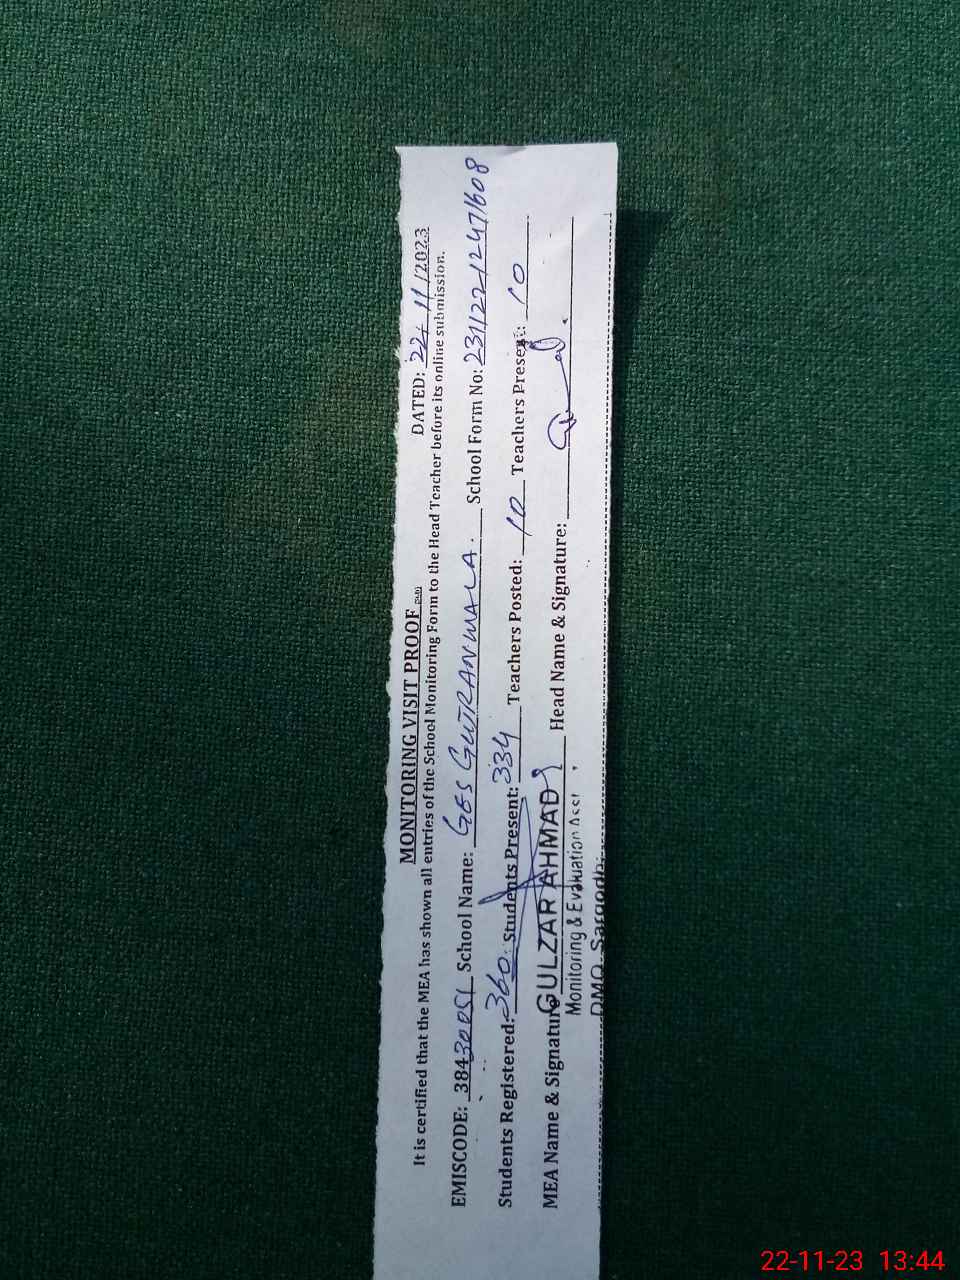 MONITORING VISIT PROOF DATED: 22/11/2023
It is certified that the MEA has shown all entries of the School Monitoring Form to the Head Teacher before its online submission.
EMISCODE: 38430051 School Name: GES GUJRANWALA. School Form No:
Students Registered: 360 Students Present: 334 Teachers Posted: 10 Teachers Present: 10
MEA Name & Signature GULZAR AHMAD Head Name & Signature:
Monitoring & Evaluation Asst
DMO, Sargodha
22-11-23 13:44